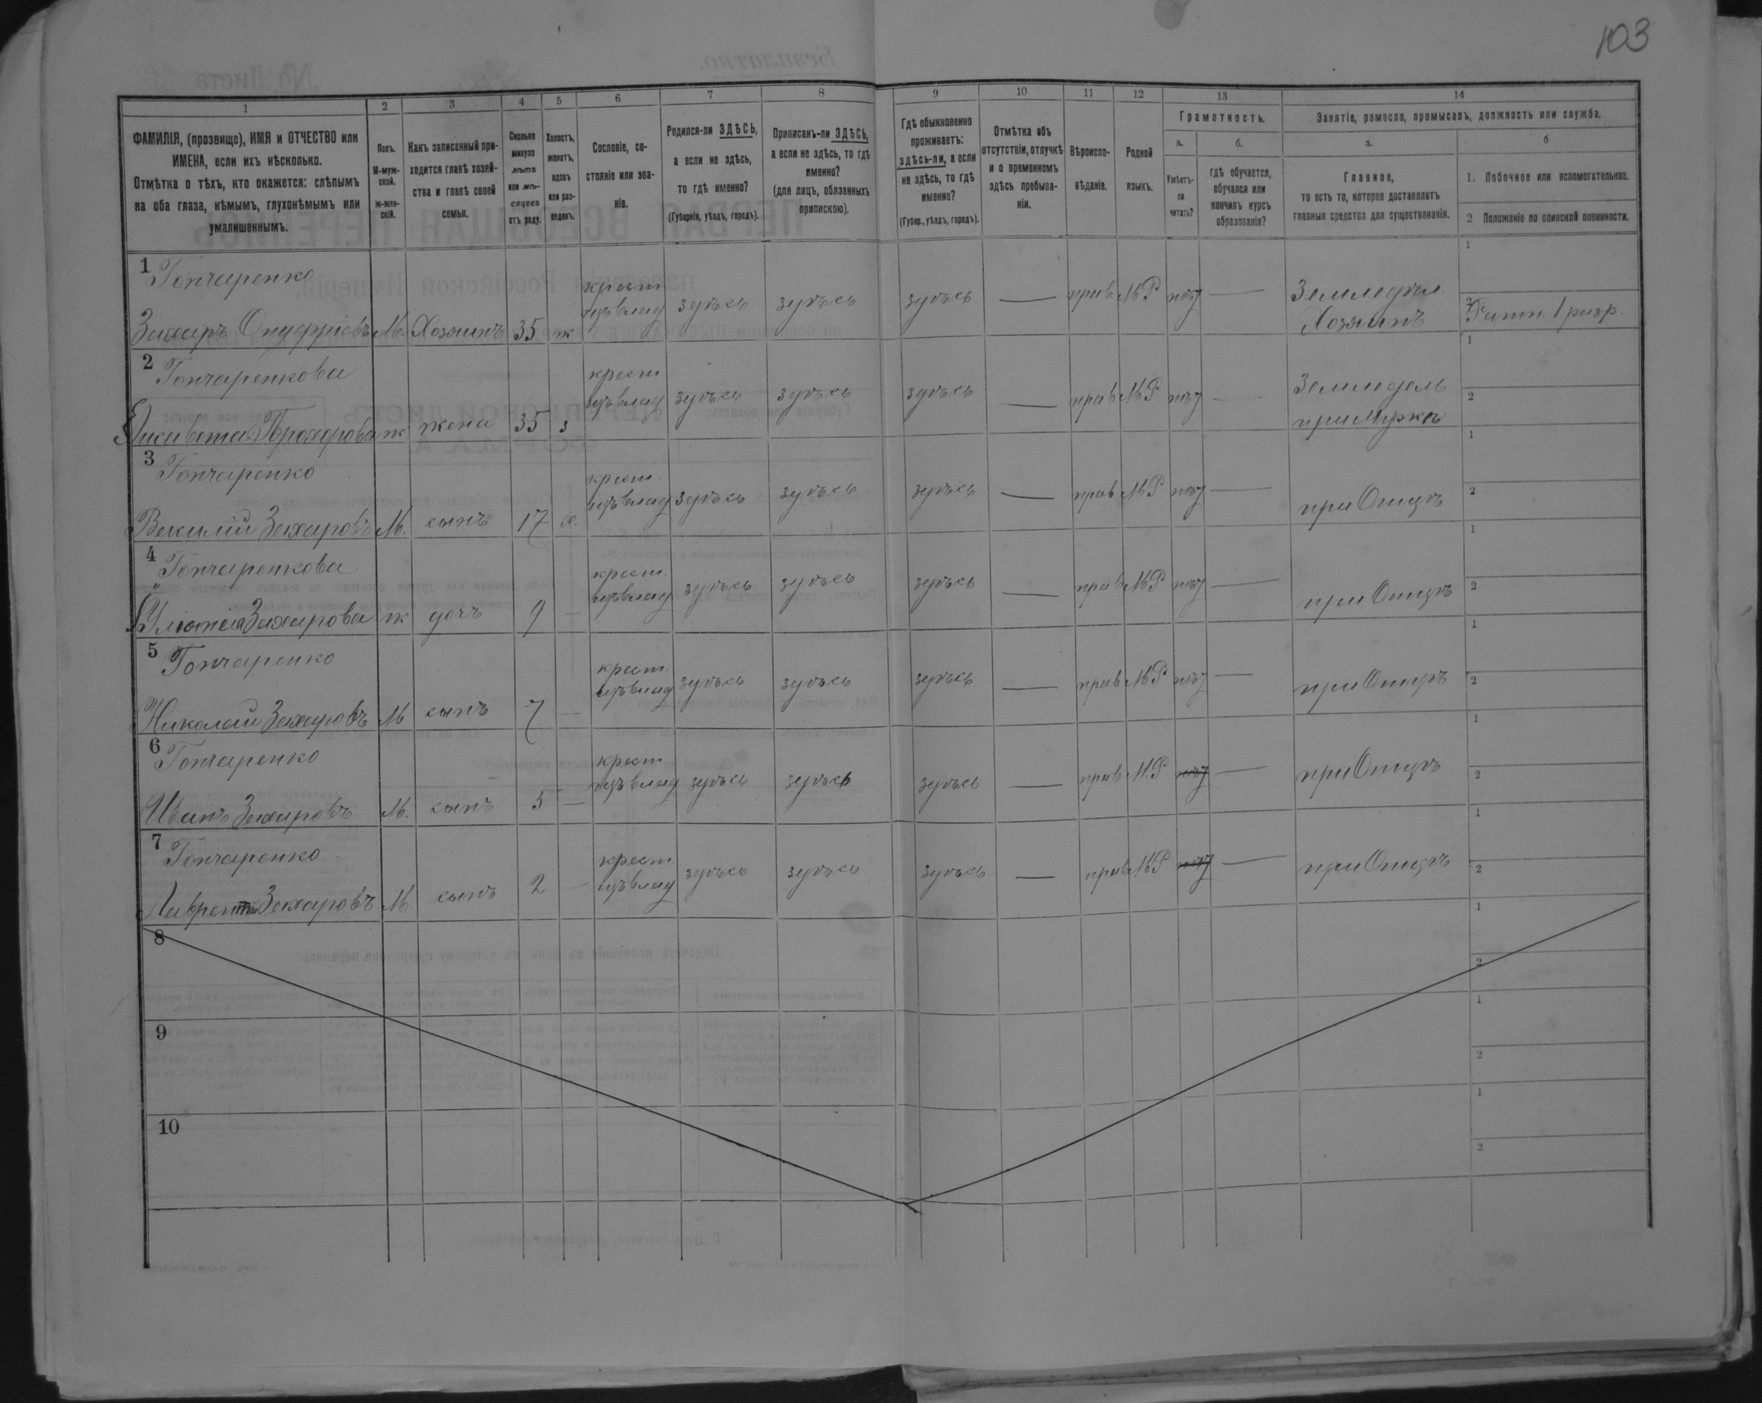 103
1 2 3 4 5 6 7 8 9 10 11 12 13 14
ФАМИЛІЯ, (прозвище), ИМЯ и ОТЧЕСТВО или ИМЕНА, если ихъ нѣсколько.
Отмѣтка о тѣхъ, кто окажется: слѣпымъ на оба глаза, нѣмымъ, глухонѣмымъ или умалишеннымъ.
Полъ.
М-мужской.
ж-женскій.
Какъ записанный приходится главѣ хозяйства и главѣ своей семьи.
Сколько минуло лѣтъ или мѣсяцевъ отъ роду.
Холостъ, женатъ, вдовъ или разведенъ.
Сословіе, состояніе или званіе.
Родился-ли ЗДѢСЬ, а если не здѣсь, то гдѣ именно?
(Губернія, уѣздъ, городъ).
Приписанъ-ли ЗДѢСЬ, а если не здѣсь, то гдѣ именно?
(для лицъ, обязанныхъ припискою).
Гдѣ обыкновенно проживаетъ: здѣсь-ли, а если не здѣсь, то гдѣ именно?
(Губер., уѣздъ, городъ).
Отмѣтка объ отсутствіи, отлучкѣ и о временномъ здѣсь пребываніи.
Вѣроисповѣданіе.
Родной языкъ.
Грамотность.
а.
Умѣетъ-ли читать?
б.
гдѣ обучается, обучался или кончилъ курсъ образованія?
Занятіе, ремесло, промыселъ, должность или служба.
а.
Главное,
то есть то, которое доставляетъ главныя средства для существованія.
б
1. Побочное или вспомогательное.
2 Положеніе по воинской повинности.
1 Гончаренко
Захаръ Онуфріевъ М. Хозяинъ 35 ж крест. изъ влад здѣсь здѣсь здѣсь — прав МР нѣт — Земледѣл. Хозяинъ
1
2 Ратн. 1 разр.
2 Гончаренкова
Елисавета Прохорова ж жена 35 з крест изъ влад здѣсь здѣсь здѣсь — прав МР нѣт — Земледѣль при Мужѣ
1
2
3 Гончаренко
Василій Захаровъ М. сынъ 17 х. крест. изъ влад здѣсь здѣсь здѣсь — прав МР нѣт — при Отцѣ
1
2
4 Гончаренкова
Улита Захарова ж дочь 9 — крест. изъ влад здѣсь здѣсь здѣсь — прав МР нѣт — при Отцѣ
1
2
5 Гончаренко
Николай Захаровъ М сынъ 7 — крест. изъ влад здѣсь здѣсь здѣсь — прав МР нѣт — при Отцѣ
1
2
6 Гончаренко
Иванъ Захаровъ М. сынъ 5 — крест изъ влад здѣсь здѣсь здѣсь — прав МР нѣт — при Отцѣ
1
2
7 Гончаренко
Лаврентій Захаровъ М сынъ 2 — крест изъ влад здѣсь здѣсь здѣсь — прав МР нѣт — при Отцѣ
1
2
8
1
2
9
1
2
10
1
2